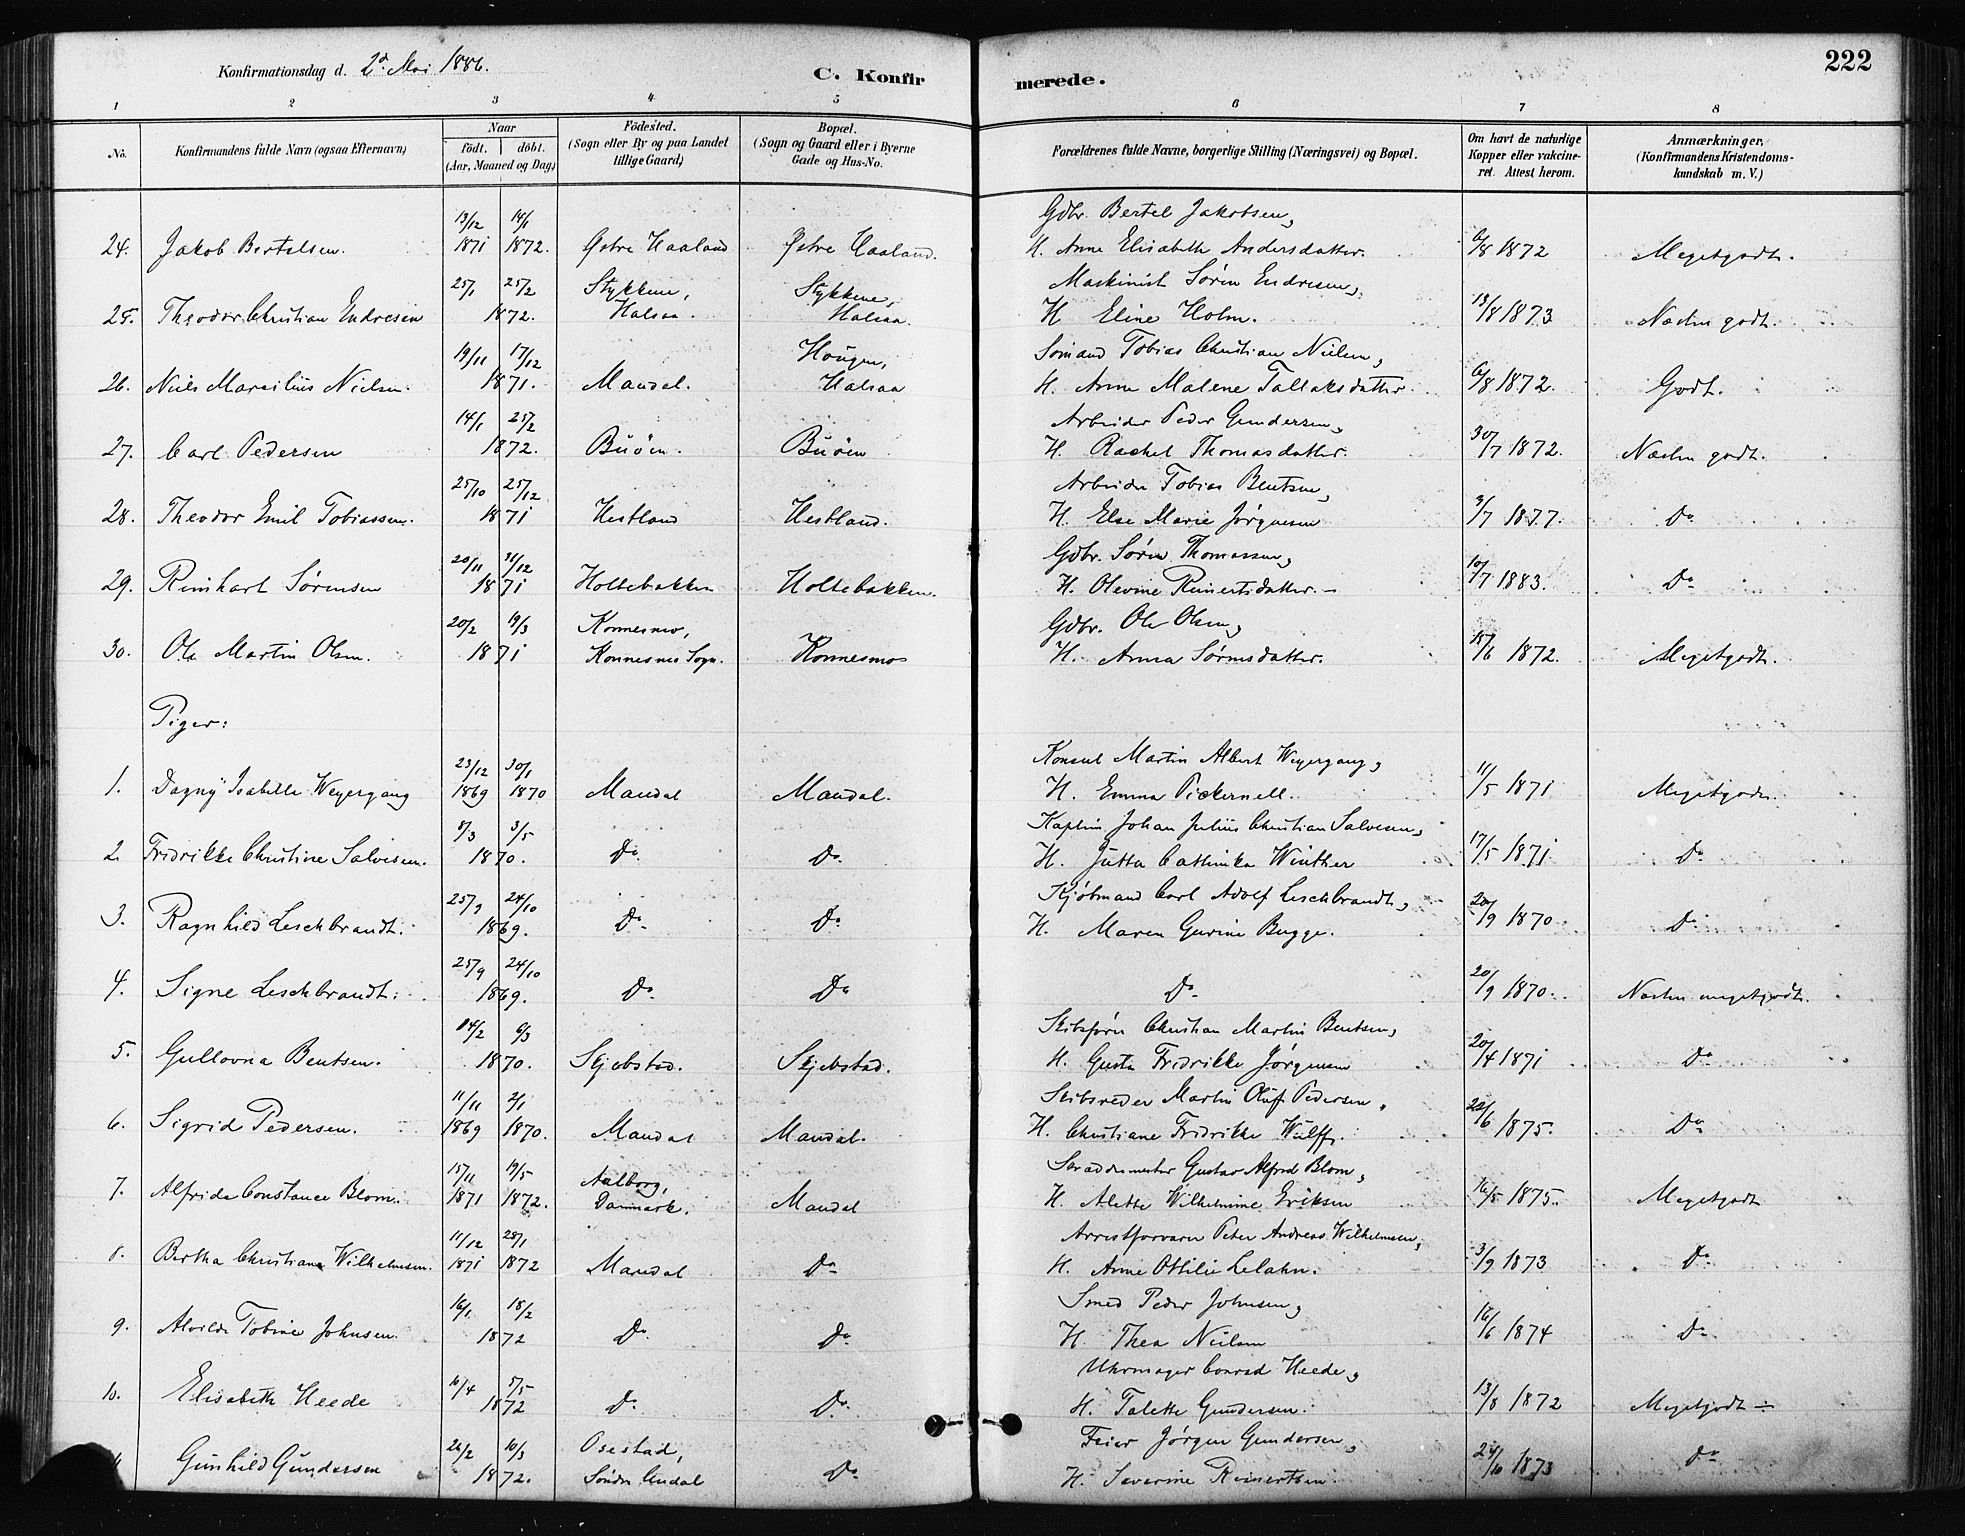 222
Konfirmationsdag d. 2de Mai 1886.
C. Konfirmerede.
1 2 3 4 5 6 7 8
No. Konfirmandens fulde Navn (ogsaa Efternavn) Naar födt. döbt. (Aar, Maaned og Dag) Födested. (Sogn eller By og paa Landet tillige Gaard) Bopæl. (Sogn og Gaard eller i Byerne Gade og Hus-No. Forældrenes fulde Navne, borgerlige Stilling (Næringsvei) og Bopæl. Om havt de naturlige Kopper eller vakcineret. Attest herom. Anmærkninger. (Konfirmandens Kristendomskundskab m. V.)
13/12 14/1 Gbr. Bertel Jakobsen,
24. Jakob Bertelsen. 1871 1872. Østre Haaland Østre Haaland. H. Anne Elisabeth Andersdatter. 6/8 1872 Megetgodt.
25/1 25/2 Stykkene, Stykkene, Maskinist Sören Endresen,
25. Theodor Christian Endresen 1872. Halsaa. Halsaa. H. Eline Holm. 13/8 1873 Næsten godt.
19/11 17/12 Hougen, Sömand Tobias Christian Nielsen,
26. Niels Marsilius Nielsen. 1871. Mandal. Halsaa H. Anne Malene Tallaksdatter. 6/8 1872. Godt.
14/1 25/2 Arbeider Peder Gundersen,
27. Carl Pedersen 1872. Buöen. Buöen H. Rachel Thomasdatter. 30/7 1872. Næsten godt.
25/10 25/12 Arbeider Tobias Bentsen,
28. Theodor Emil Tobiassen. 1871 Hestland Hestland. H. Else Marie Jörgensen 3/7 1877. Do
20/11 31/12 Gbr. Sören Thomassen,
29. Reinhart Sörensen 1871 Holtebakken Holtebakken. H. Olevine Reinertsdatter. 10/7 1883. Do
20/2 19/3 Konnesmo, Gbr. Ole Olsen,
30. Ole Martin Olsen. 1871 Konnesmo Sogn. Konnesmo H. Anna Sörensdatter. 15/6 1872. Megetgodt.
Piger:
23/12 30/1 Konsul Martin Albert Weyergang,
1. Dagny Isabella Weyergang 1869 1870 Mandal Mandal. H. Emma Pickernell. 11/5 1871 Megetgodt.
8/3 3/5 Kaptein Johan Julius Christian Salvesen,
2. Fredrikke Christine Salvesen. 1870. Do Do H. Jutta Cathinka Winther 17/5 1871 Do
25/9 24/10 Kjöbmand Carl Adolf Leschbrandt,
3. Ragnhild Leschbrandt. 1869. Do Do H. Maren Gurine Bugge. 20/9 1870 Do
25/9 24/10
4. Signe Leschbrandt. 1869. Do Do Do 20/9 1870. Næsten megetgodt.
14/2 6/3 Skibsförer Christian Martin Bentsen,
5. Gullovna Bentsen. 1870. Skjebstad. Skjebstad. H. Gusta Fredrikke Jörgensen 20/4 1871 Do
11/11 2/1 Skibsreder Martin Oluf Pedersen,
6. Sigrid Pedersen. 1869 1870. Mandal Mandal. H. Christiane Fredrikke Wulff. 22/6 1875. Do
15/11 19/5 Aalborg, Skræddermester Gustav Alfred Blom,
7. Alfrida Constance Blom. 1871 1872. Danmark. Mandal H. Alette Wilhelmine Eriksen 16/5 1875. Megetgodt
11/12 28/1 Arrestforvarer Peter Andreas Wilhelmsen,
8. Bertha Christiane Wilhelmsen. 1871 1872 Mandal Do H. Anne Ottilie Lelahn. 3/9 1873 Do
16/1 18/2 Smed Peder Johnsen,
9. Alvilde Tobine Johnsen. 1872 Do Do H. Thea Nielsen 16/6 1874 Do
16/4 5/5 Uhrmager Conrad Heede,
10. Elisabeth Heede 1872 Do Do H. Talette Gundersen. 13/8 1872 Megetgodt ÷
26/2 10/3 Osestad, Feier Jörgen Gundersen,
Gunhild Gundersen 1872. Söndre Undal Do H. Severine Reinertsen. 24/10 1873 Do